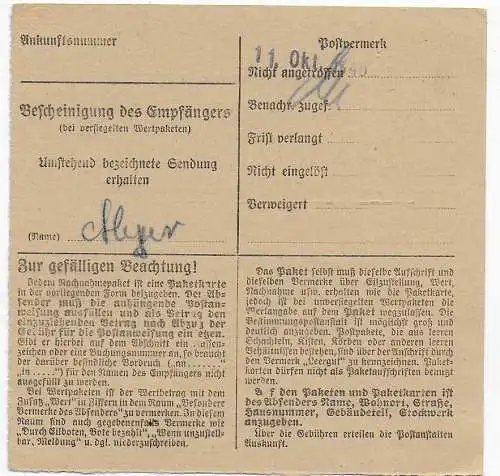 Ankunftsnummer
Postvermerk
11. Okt.
Nicht angetroffen
Benachr. zugef.
Frist verlangt
Nicht eingelöst
Verweigert
Bescheinigung des Empfängers
(bei versiegelten Wertpaketen)
Umstehend bezeichnete Sendung
erhalten
(Name) Meyer
Zur gefälligen Beachtung!
Jedem Nachnahmepaket ist eine Paketkarte
in der vorliegenden Form beizugeben. Der Ab-
sender muß die anhängende Postan-
weisung ausfüllen und als Betrag den
einzuziehenden Betrag nach Abzug der
Gebühr für die Postanweisung ein etzen.
Gibt er hierbei auf dem Abschnitt ein Kassen-
zeichen oder eine Buchungsnummer an, so braucht
der darüber befindliche Vordruck („an ......“
„in .....“) für den Namen des Empfängers nicht
ausgefüllt zu werden.
Bei Wertpaketen ist der Wertbetrag mit dem
Zusatz „Wert“ in Ziffern in dem Raum „Besondere
Vermerke des Absenders“ zu vermerken. In diesem
Raum sind auch gegebenenfalls Vermerke wie
„Durch Eilboten, Bote bezahlt“, „Wenn unzustell-
bar, Meldung“ u. dgl. niederzuschreiben.
Das Paket selbst muß dieselbe Aufschrift und
dieselben Vermerke über Eilzustellung, Wert,
Nachnahme usw. erhalten wie die Paketkarte,
jedoch ist bei unversiegelten Wertpaketen die
Wertangabe auf dem Paket wegzulassen. Die
Bestimmungspostanstalt ist möglichst groß und
deutlich anzugeben. Postpakete, die aus leeren
Schachteln, Kisten, Körben oder anderen leeren
Behältnissen bestehen, sind über der Aufschrift durch
den Vermerk „Leergut“ zu kennzeichnen. Paket-
karten dürfen nicht als Paketaufschriften benutzt
werden.
A f den Paketen und Paketkarten ist
des Absenders Name, Wohnort, Straße,
Hausnummer, Gebäudeteil, Stockwerk
anzugeben.
Über die Gebühren erteilen die Postanstalten
Auskunft.